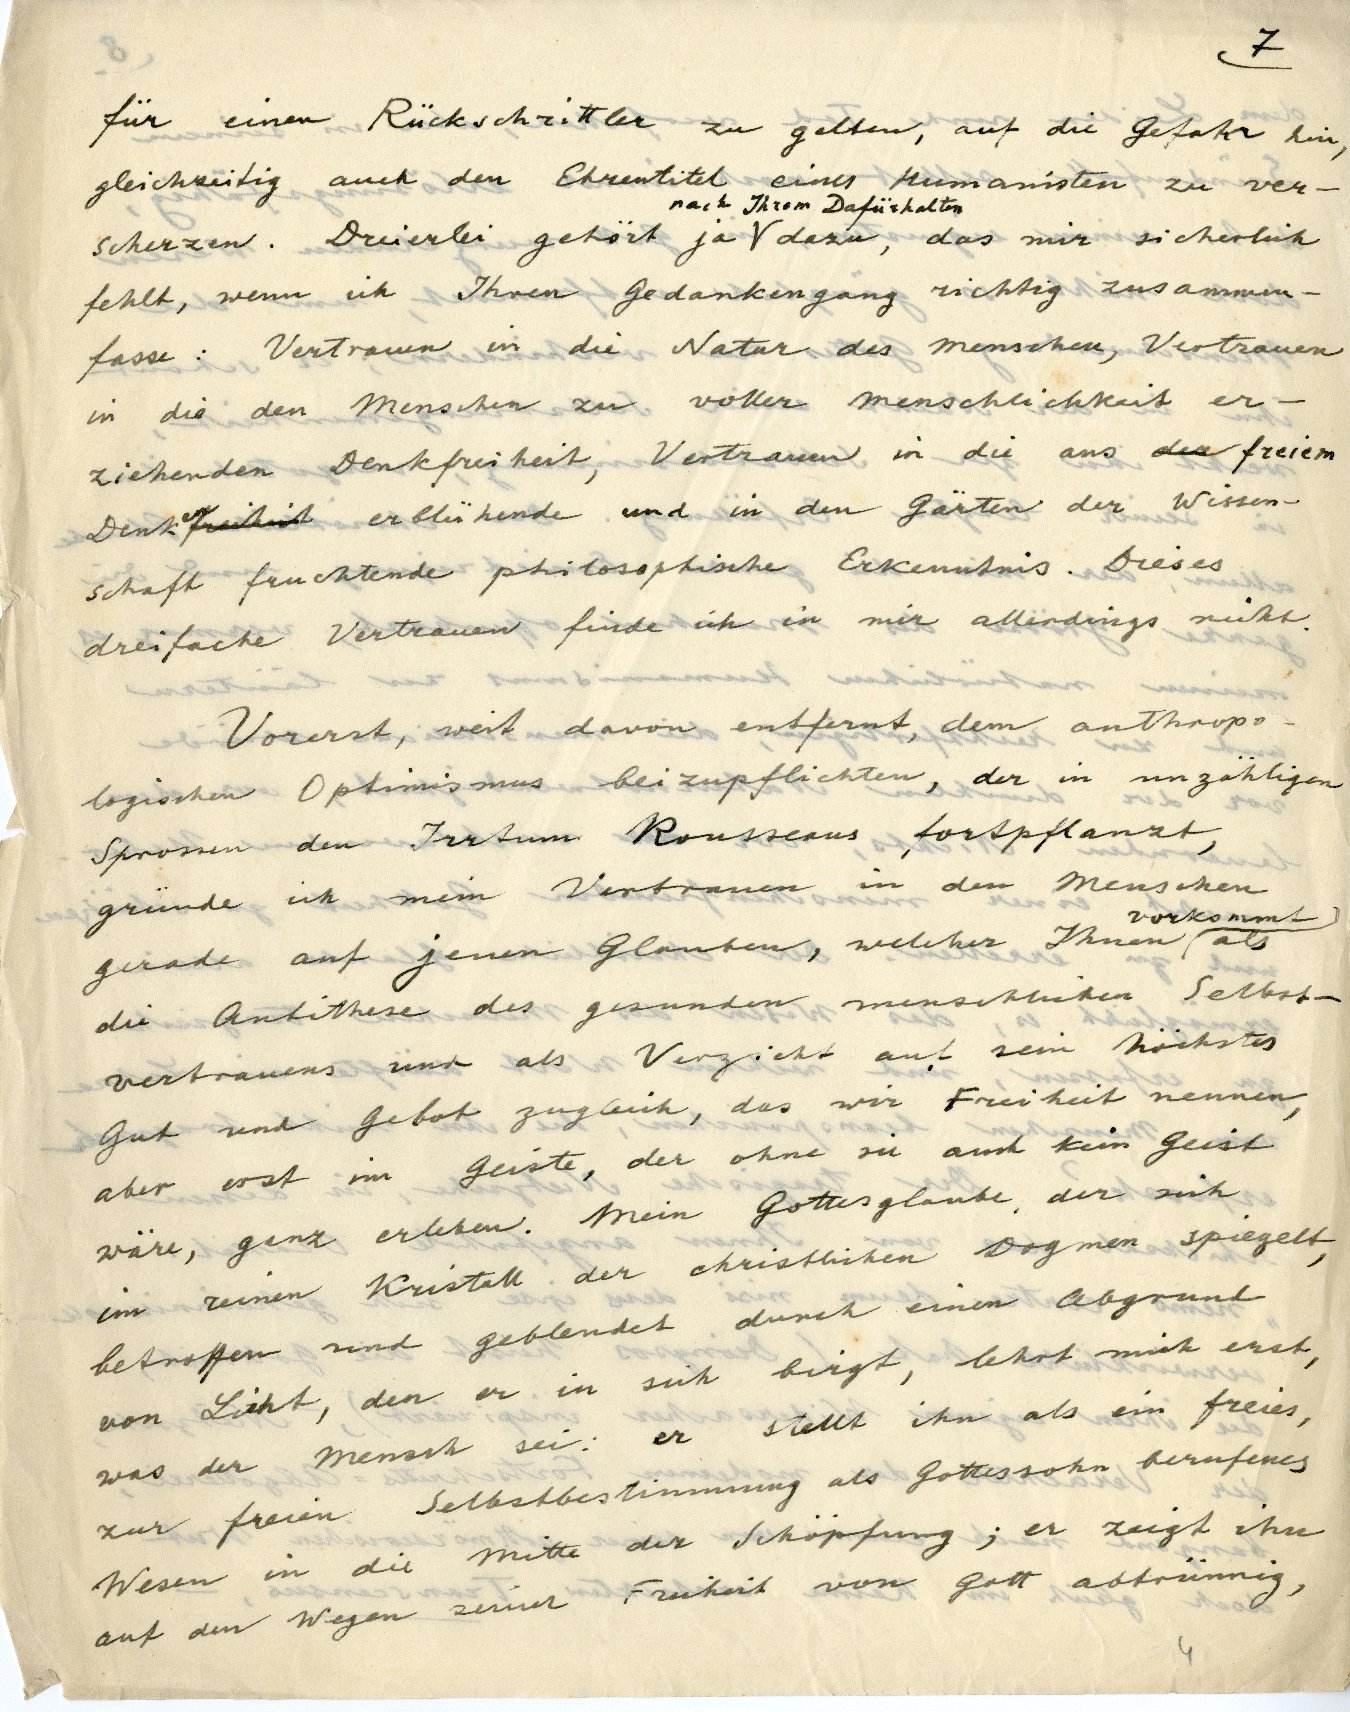 7
für einen Rückschrittler zu gelten, auf die Gefahr hin,
gleichzeitig auch den Ehrentitel eines Humanisten zu ver-
nach Ihrem Dafürhalten
scherzen. Dreierlei gehört ja V dazu, das mir sicherlich
fehlt, wenn ich Ihren Gedankengang richtig zusammen-
fasse: Vertrauen in die Natur des Menschen, Vertrauen
in die den Menschen zu voller Menschlichkeit er-
ziehenden Denkfreiheit, Vertrauen in die aus der freiem
Denken freiheit erblühende und in den Gärten der Wissen-
schaft fruchtende philosophische Erkenntnis. Dieses
dreifache Vertrauen finde ich in mir allerdings nicht.
Vorerst, weit davon entfernt, dem anthropo-
logischen Optimismus beizupflichten, der in unzähligen
Sprossen den Irrtum Rousseaus fortpflanzt,
gründe ich mein Vertrauen in den Menschen
vorkommt
gerade auf jenen Glauben, welcher Ihnen (als
die Antithese des gesunden menschlichen Selbst-
vertrauens und als Verzicht auf sein höchstes
Gut und Gebot zugleich, das wir Freiheit nennen,
aber erst im Geiste, der ohne sie auch kein Geist
wäre, ganz erleben. Mein Gottesglaube, der sich
im reinen Kristall der christlichen Dogmen spiegelt,
betroffen und geblendet durch einen Abgrund
von Licht, den er in sich birgt, lehrt mich erst,
was der Mensch sei: er stellt ihn als ein freies,
zur freien Selbstbestimmung als Gottessohn berufenes
Wesen in die Mitte der Schöpfung; er zeigt ihn
auf den Wegen seiner Freiheit von Gott abtrünnig,
4